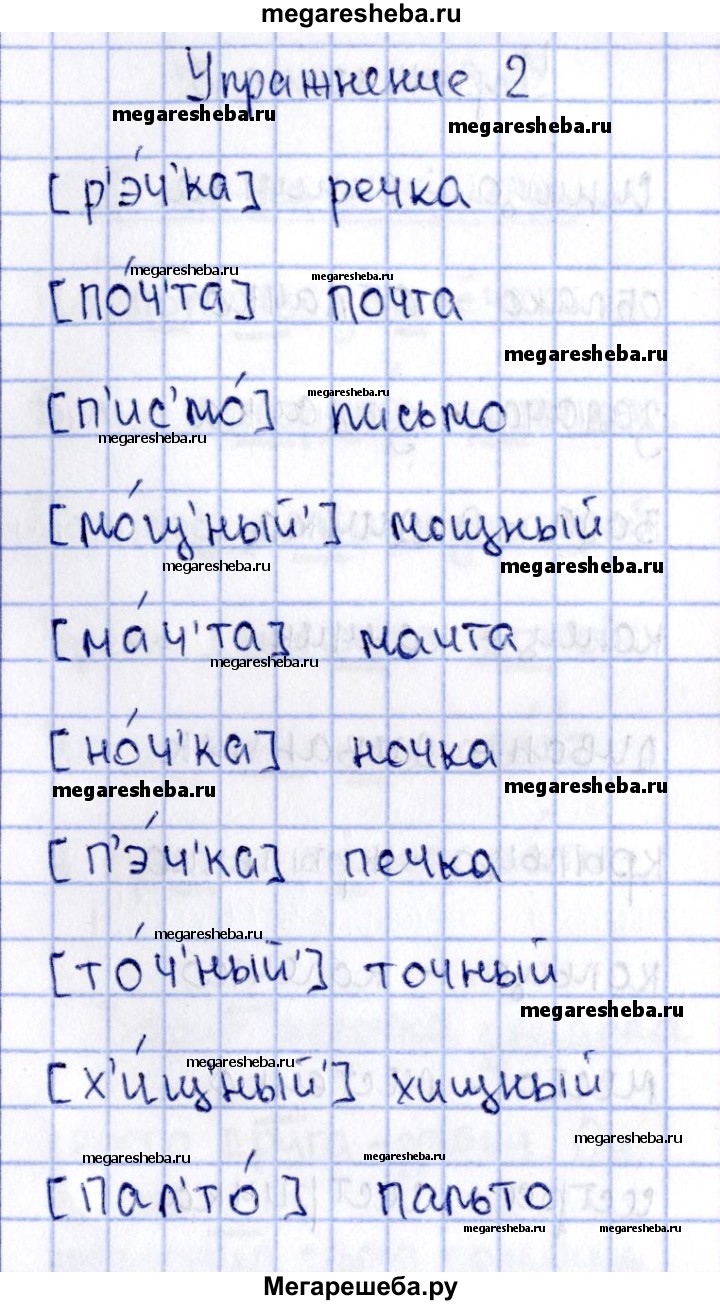 megaresheba.ru
Упражнение 2
megaresheba.ru
megaresheba.ru
[р'э́ч'ка] речка
megaresheba.ru
megaresheba.ru
[по́ч'та] почта
megaresheba.ru
megaresheba.ru
[п'ис'мо́] письмо
megaresheba.ru
[мо́щ'ный'] мощный
megaresheba.ru
megaresheba.ru
[ма́ч'та] мачта
megaresheba.ru
[но́ч'ка] ночка
megaresheba.ru
megaresheba.ru
[п'э́ч'ка] печка
megaresheba.ru
[то́ч'ный'] точный
megaresheba.ru
megaresheba.ru
[х'и́щ'ный'] хищный
megaresheba.ru
megaresheba.ru
megaresheba.ru
[пал'то́] пальто
megaresheba.ru
megaresheba.ru
Мегарешеба.ру